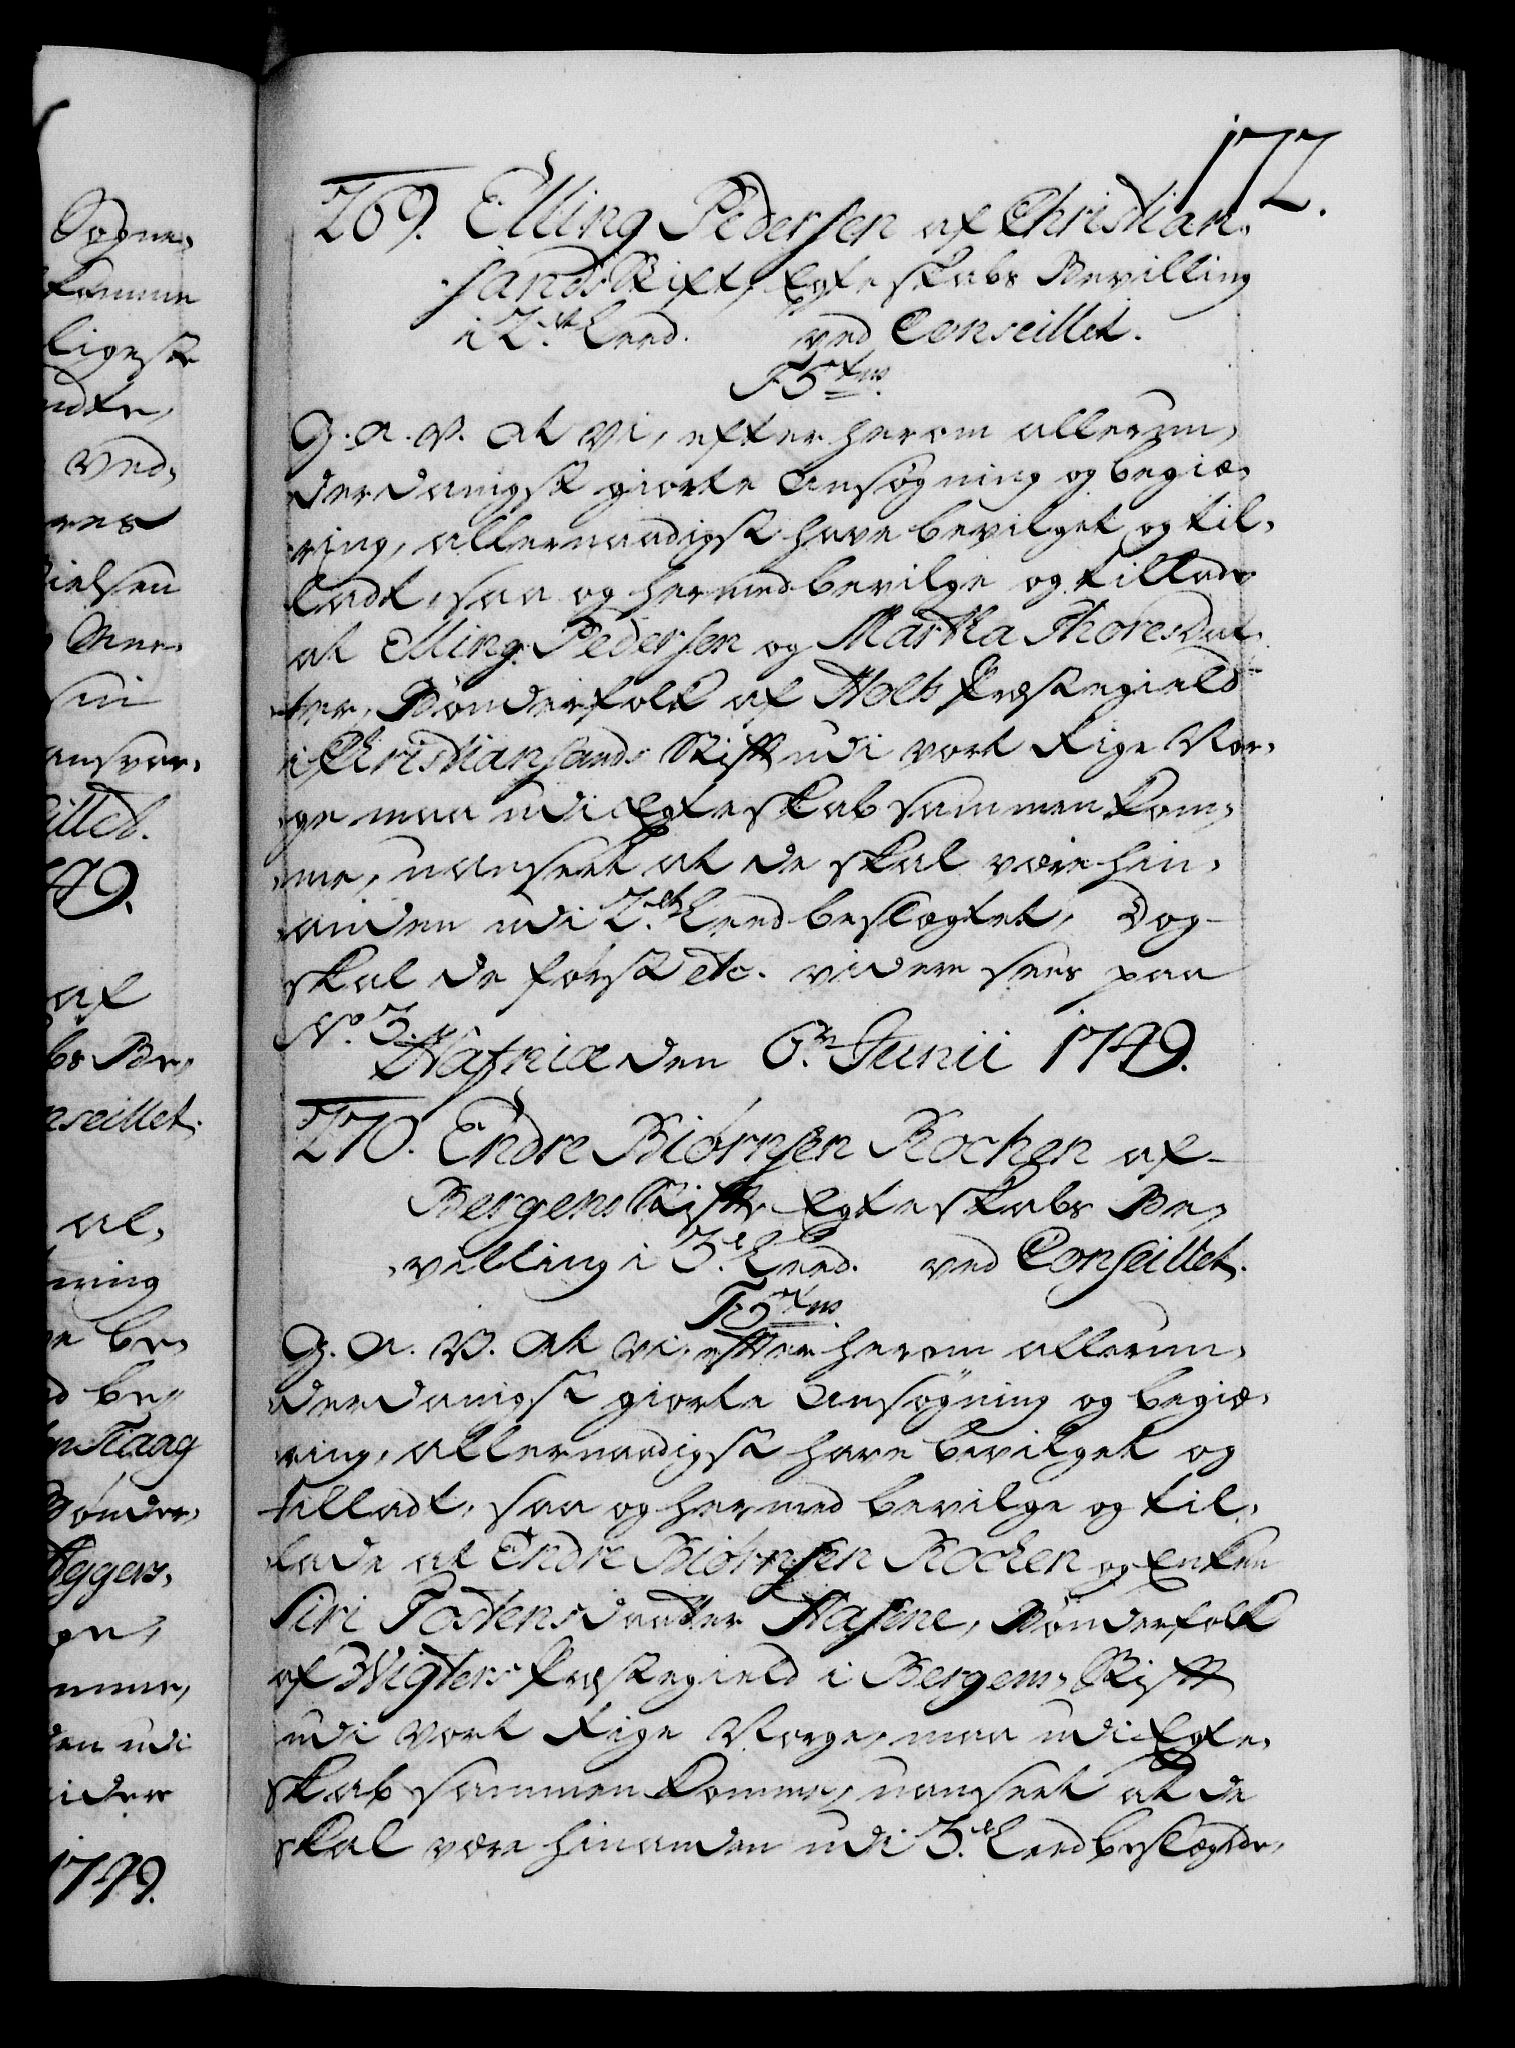 172.
269. Elling Pedersen af Christian-
sands Stift, Egteskabs Bevilling
i 2det Leed. ved Conseillet.
F5tus
G. A. V. At Vi, efter herom allerun-
derdanigst giorte Ansøgning og begiæ-
ring, allernaadigst have bevilget og til-
ladt, saa og hermed bevilge og tillade
at Elling Pedersen og Martha Thoresdat-
ter, Bønderfolk af Holts Præstegield
i Christiansands Stift udi vort Rige Nor-
ge maa udi Egteskab sammenkom-
me, uanseet at de skal være hin-
anden udi 2det Leed beslægtet, Dog
skal de først etc. videre sees paa
No. 3.
Hafniæ den 6te Junii 1749.
270. Endre Biørnsen Rochen af
Bergens Stift Egteskabs Be-
villing i 3die Leed. ved Conseillet.
F5tus
G. A. V. At Vi, efter herom allerun-
derdanigst giorte Ansøgning og begiæ-
ring, allernaadigst have bevilget og
tilladt, saa og hermed bevilge og til-
lade at Endre Biørnsen Rochen og Enken
Siri Tostensdaatter Hasene, Bønderfolk
af Wigøers Præstegield i Bergens Stift
udi vort Rige Norge, maa udi Egte-
skab sammenkomme, uanseet at de
skal være hinanden udi 3die Leed beslægtede,